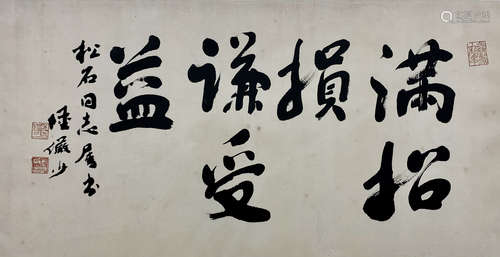 满招
損
谦受
益
松石同志属书
陆俨少